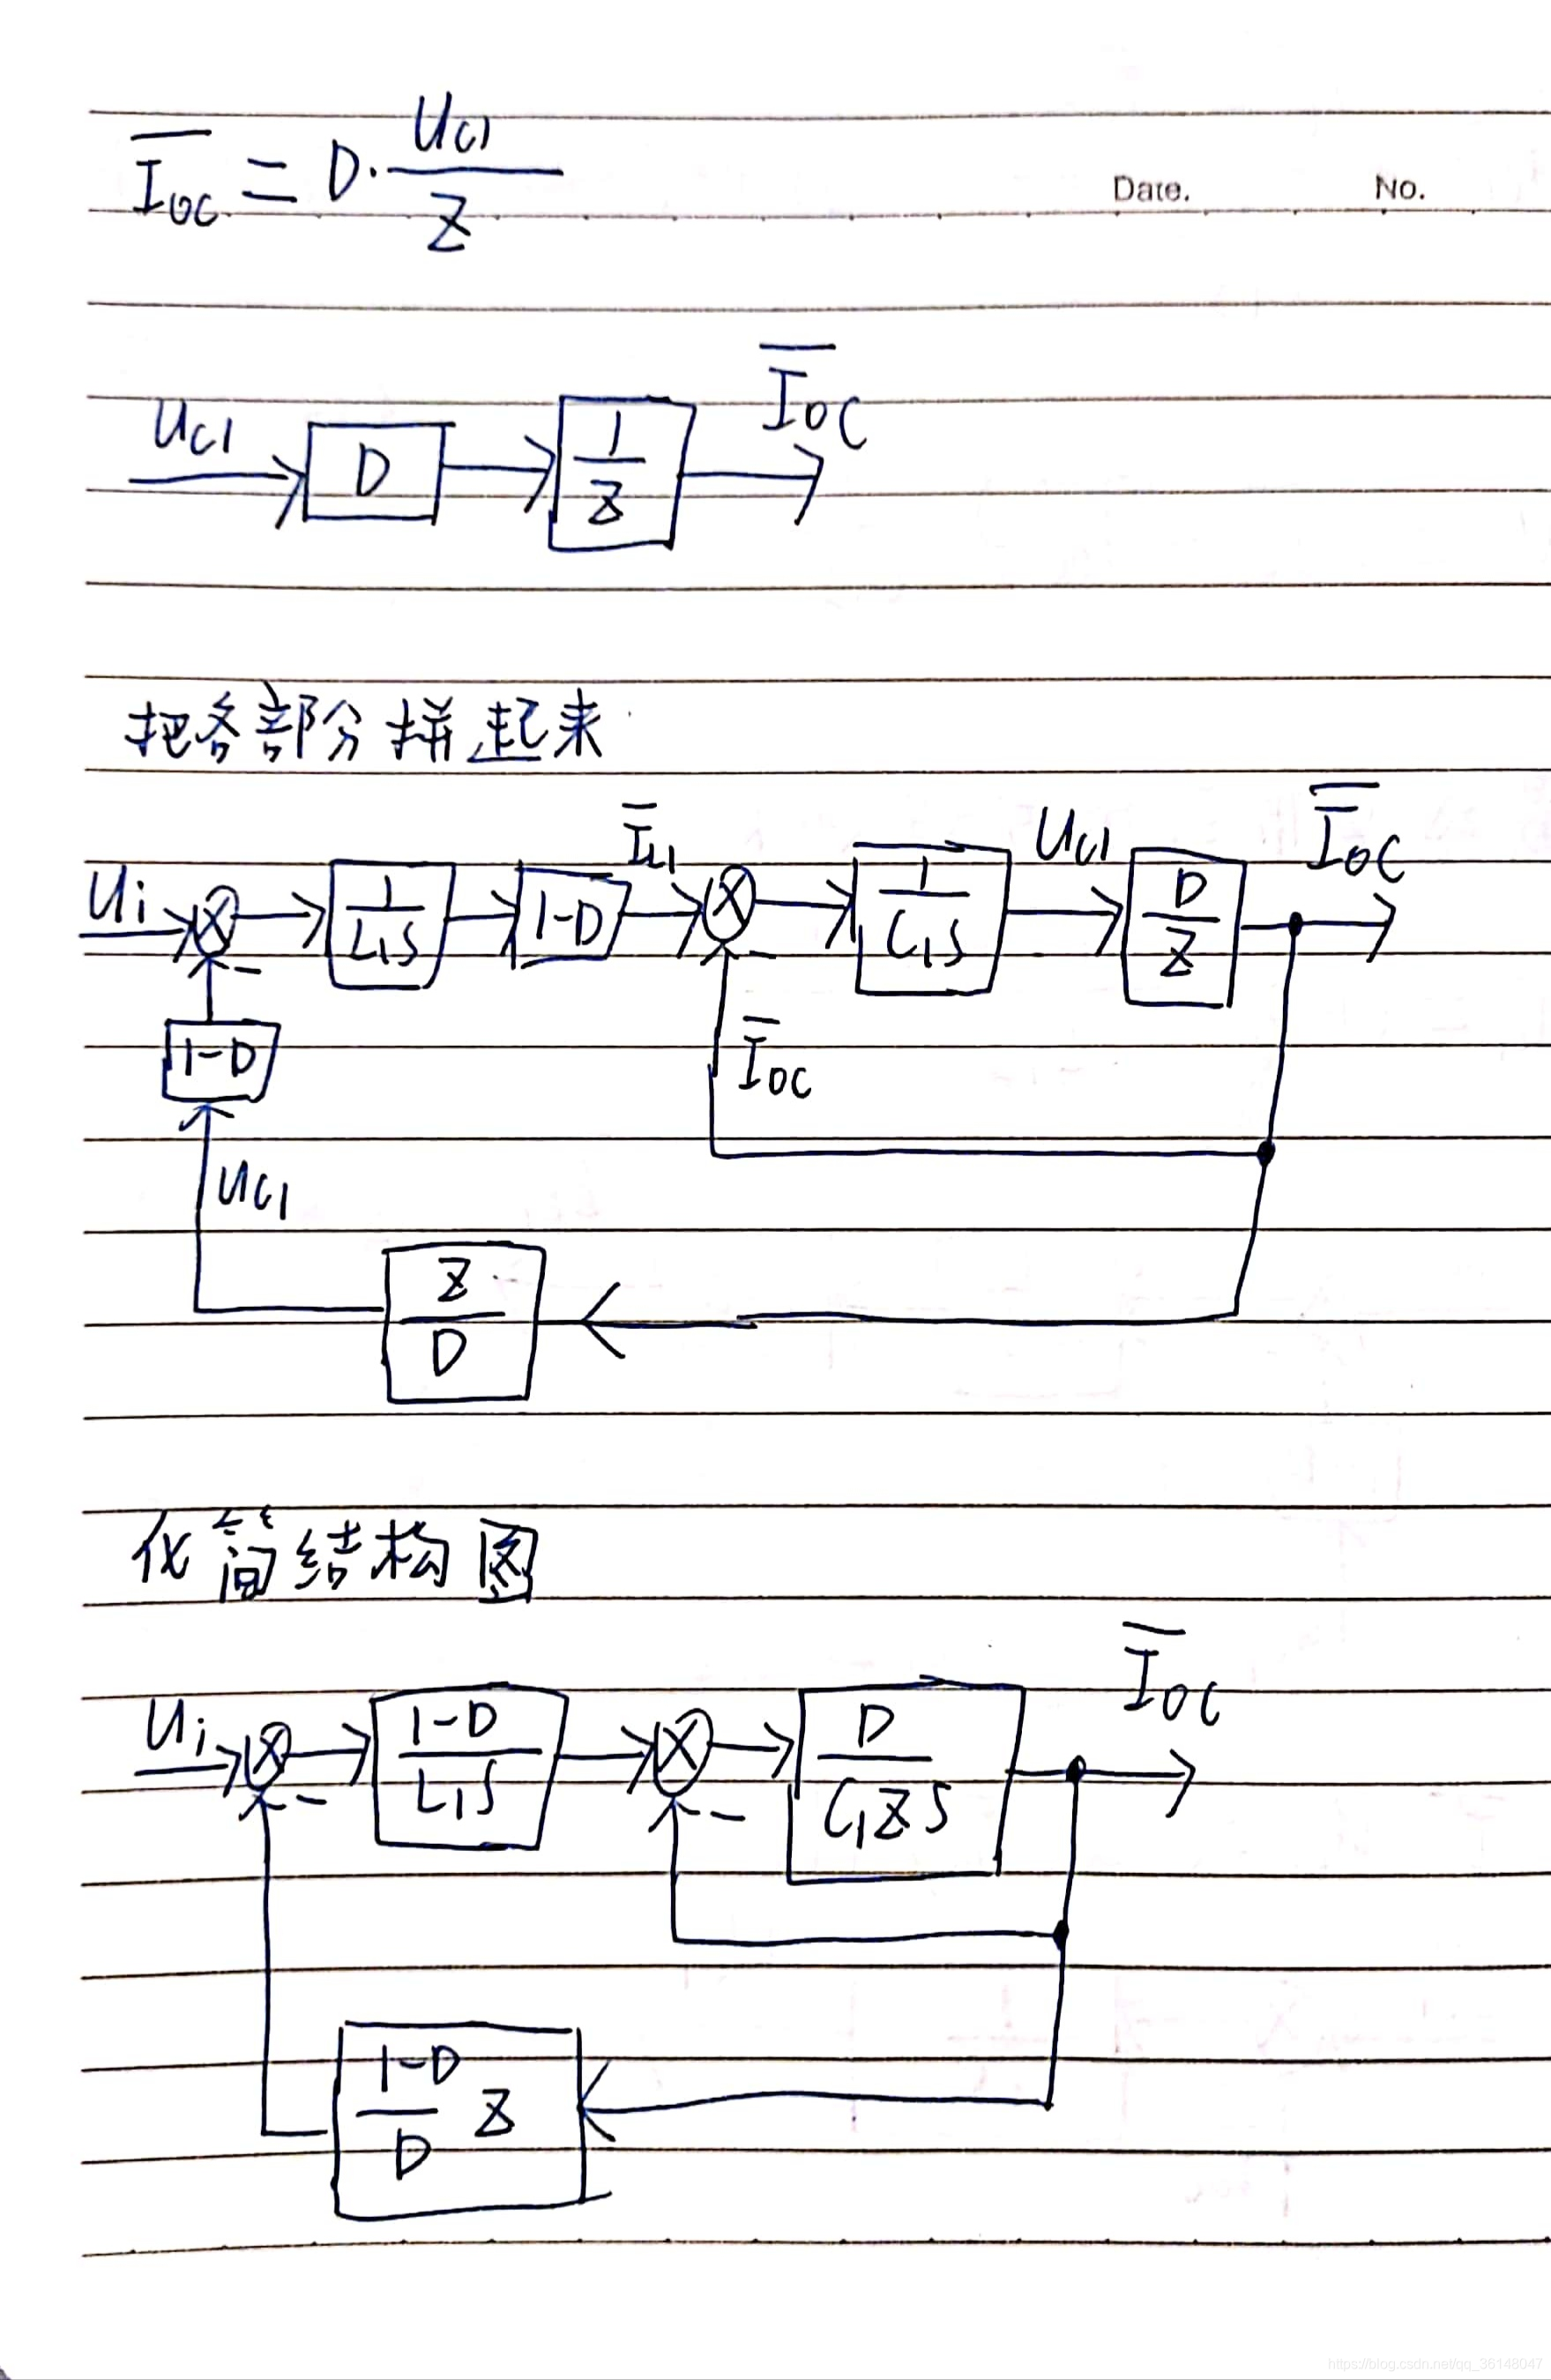 Date. No.
I̅oc = D· Uc1/Z
Uc1 D 1/Z I̅oc
把各部分拼起来
Ui 1/L1S 1-D I̅L1 1/C1S Uc1 D/Z I̅oc
-
-
1-D I̅oc
Uc1
Z/D
化简结构图
Ui (1-D)/L1S D/C1ZS I̅oc
-
-
(1-D)/D Z
https://blog.csdn.net/qq_36148047